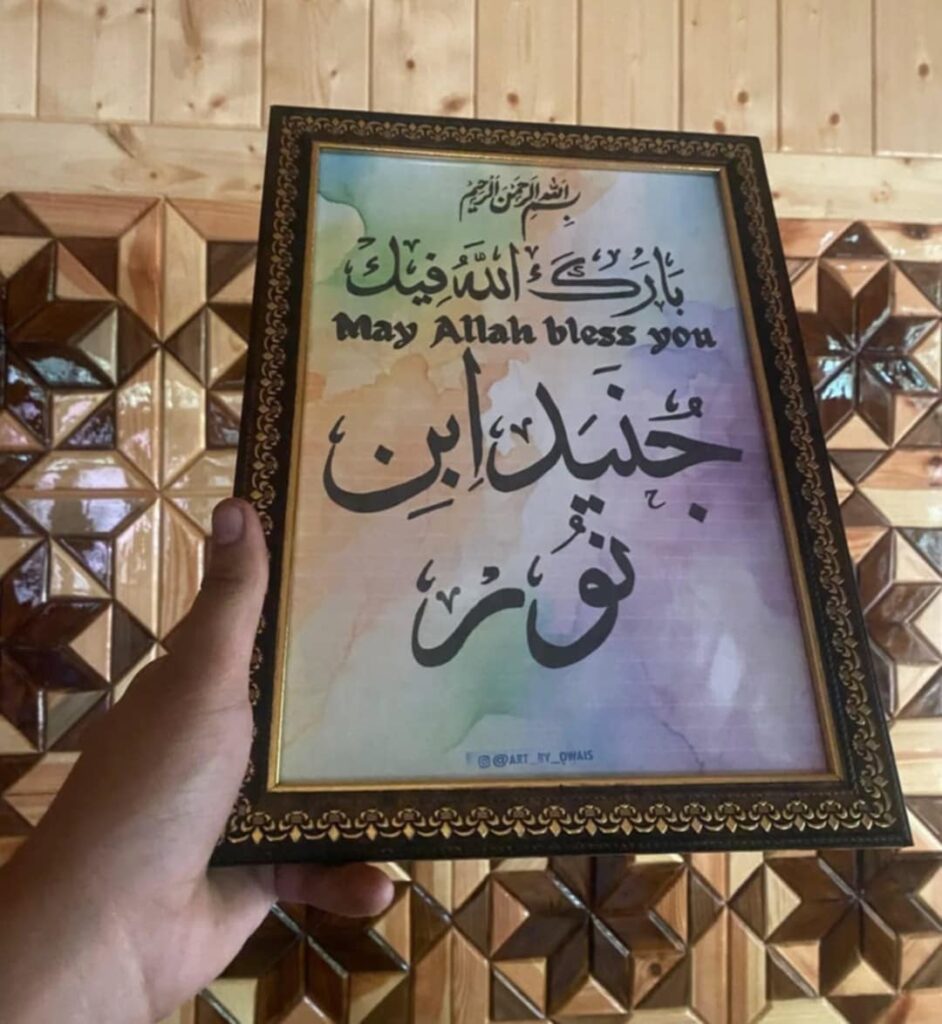 بسم الله الرحمن الرحيم
بَارَكَ اللّٰهُ فِيك
May Allah bless you
جُنَيد اِبنِ
نُور
@ART_BY_OWAIS